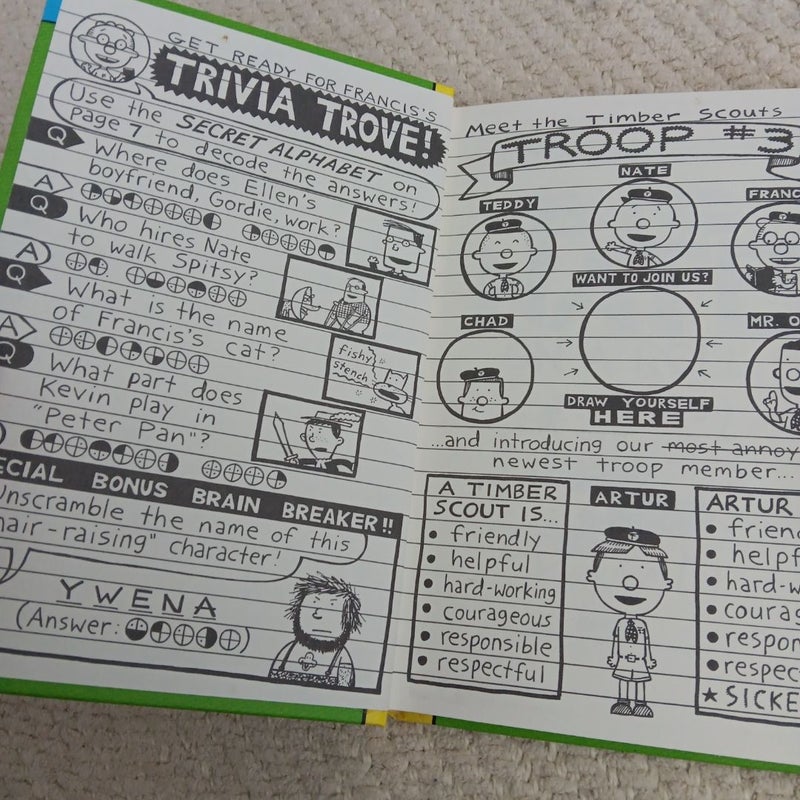 GET READY FOR FRANCIS'S
TRIVIA TROVE!
Use the SECRET ALPHABET on
page 7 to decode the answers!
Q Where does Ellen's
boyfriend, Gordie, work?
A
Q Who hires Nate
to walk Spitsy?
A
Q What is the name
of Francis's cat?
A
Q What part does
Kevin play in
"Peter Pan"?
fishy
stench
BONUS BRAIN BREAKER!!
Unscramble the name of this
hair-raising" character!
YWENA
(Answer: )
Meet the Timber Scouts
TROOP #3
TEDDY
NATE
WANT TO JOIN US?
CHAD
DRAW YOURSELF
HERE
...and introducing our most
newest troop member...
A TIMBER
SCOUT IS...
• friendly
• helpful
• hard-working
• courageous
• responsible
• respectful
ARTUR
ARTUR